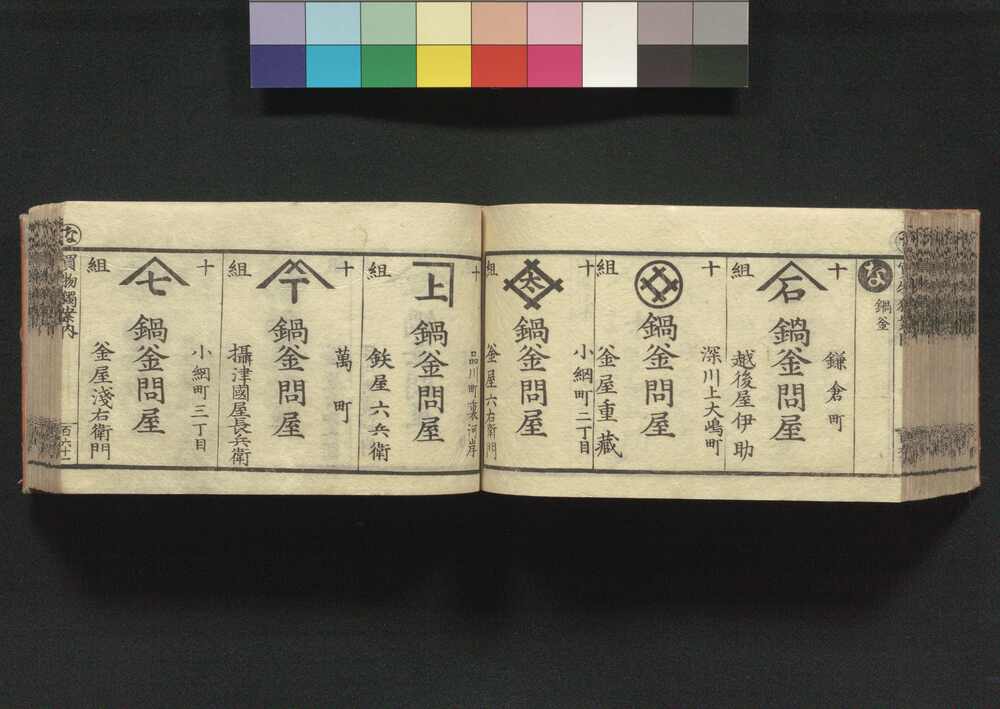 な
鍋釜
十
鎌倉町
石
鍋釜問屋
組
越後屋伊助
十
深川上大嶋町
鍋釜問屋
組
釜屋重藏
十
小網町二丁目
太
鍋釜問屋
組
釜屋六右衛門
十
品川町裏河岸
上
鍋釜問屋
組
鉄屋六兵衛
十
萬町
鍋釜問屋
組
攝津國屋長兵衛
十
小網町三丁目
七
鍋釜問屋
組
釜屋淺右衛門
な
買物獨案内
百六十一